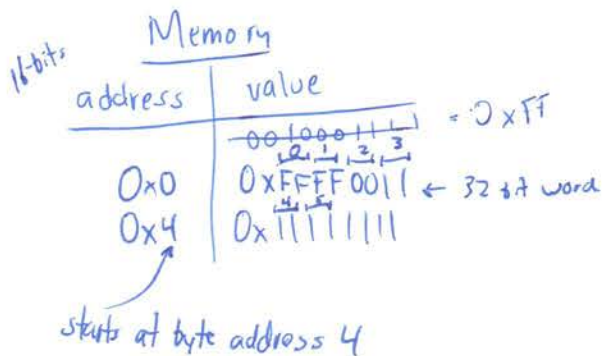 Memory
16-bits
address value
001000111 = 0xFF
0 1 2 3
0x0 0xFFFF0011 ← 32 bit word
4 5
0x4 0x11111111
starts at byte address 4